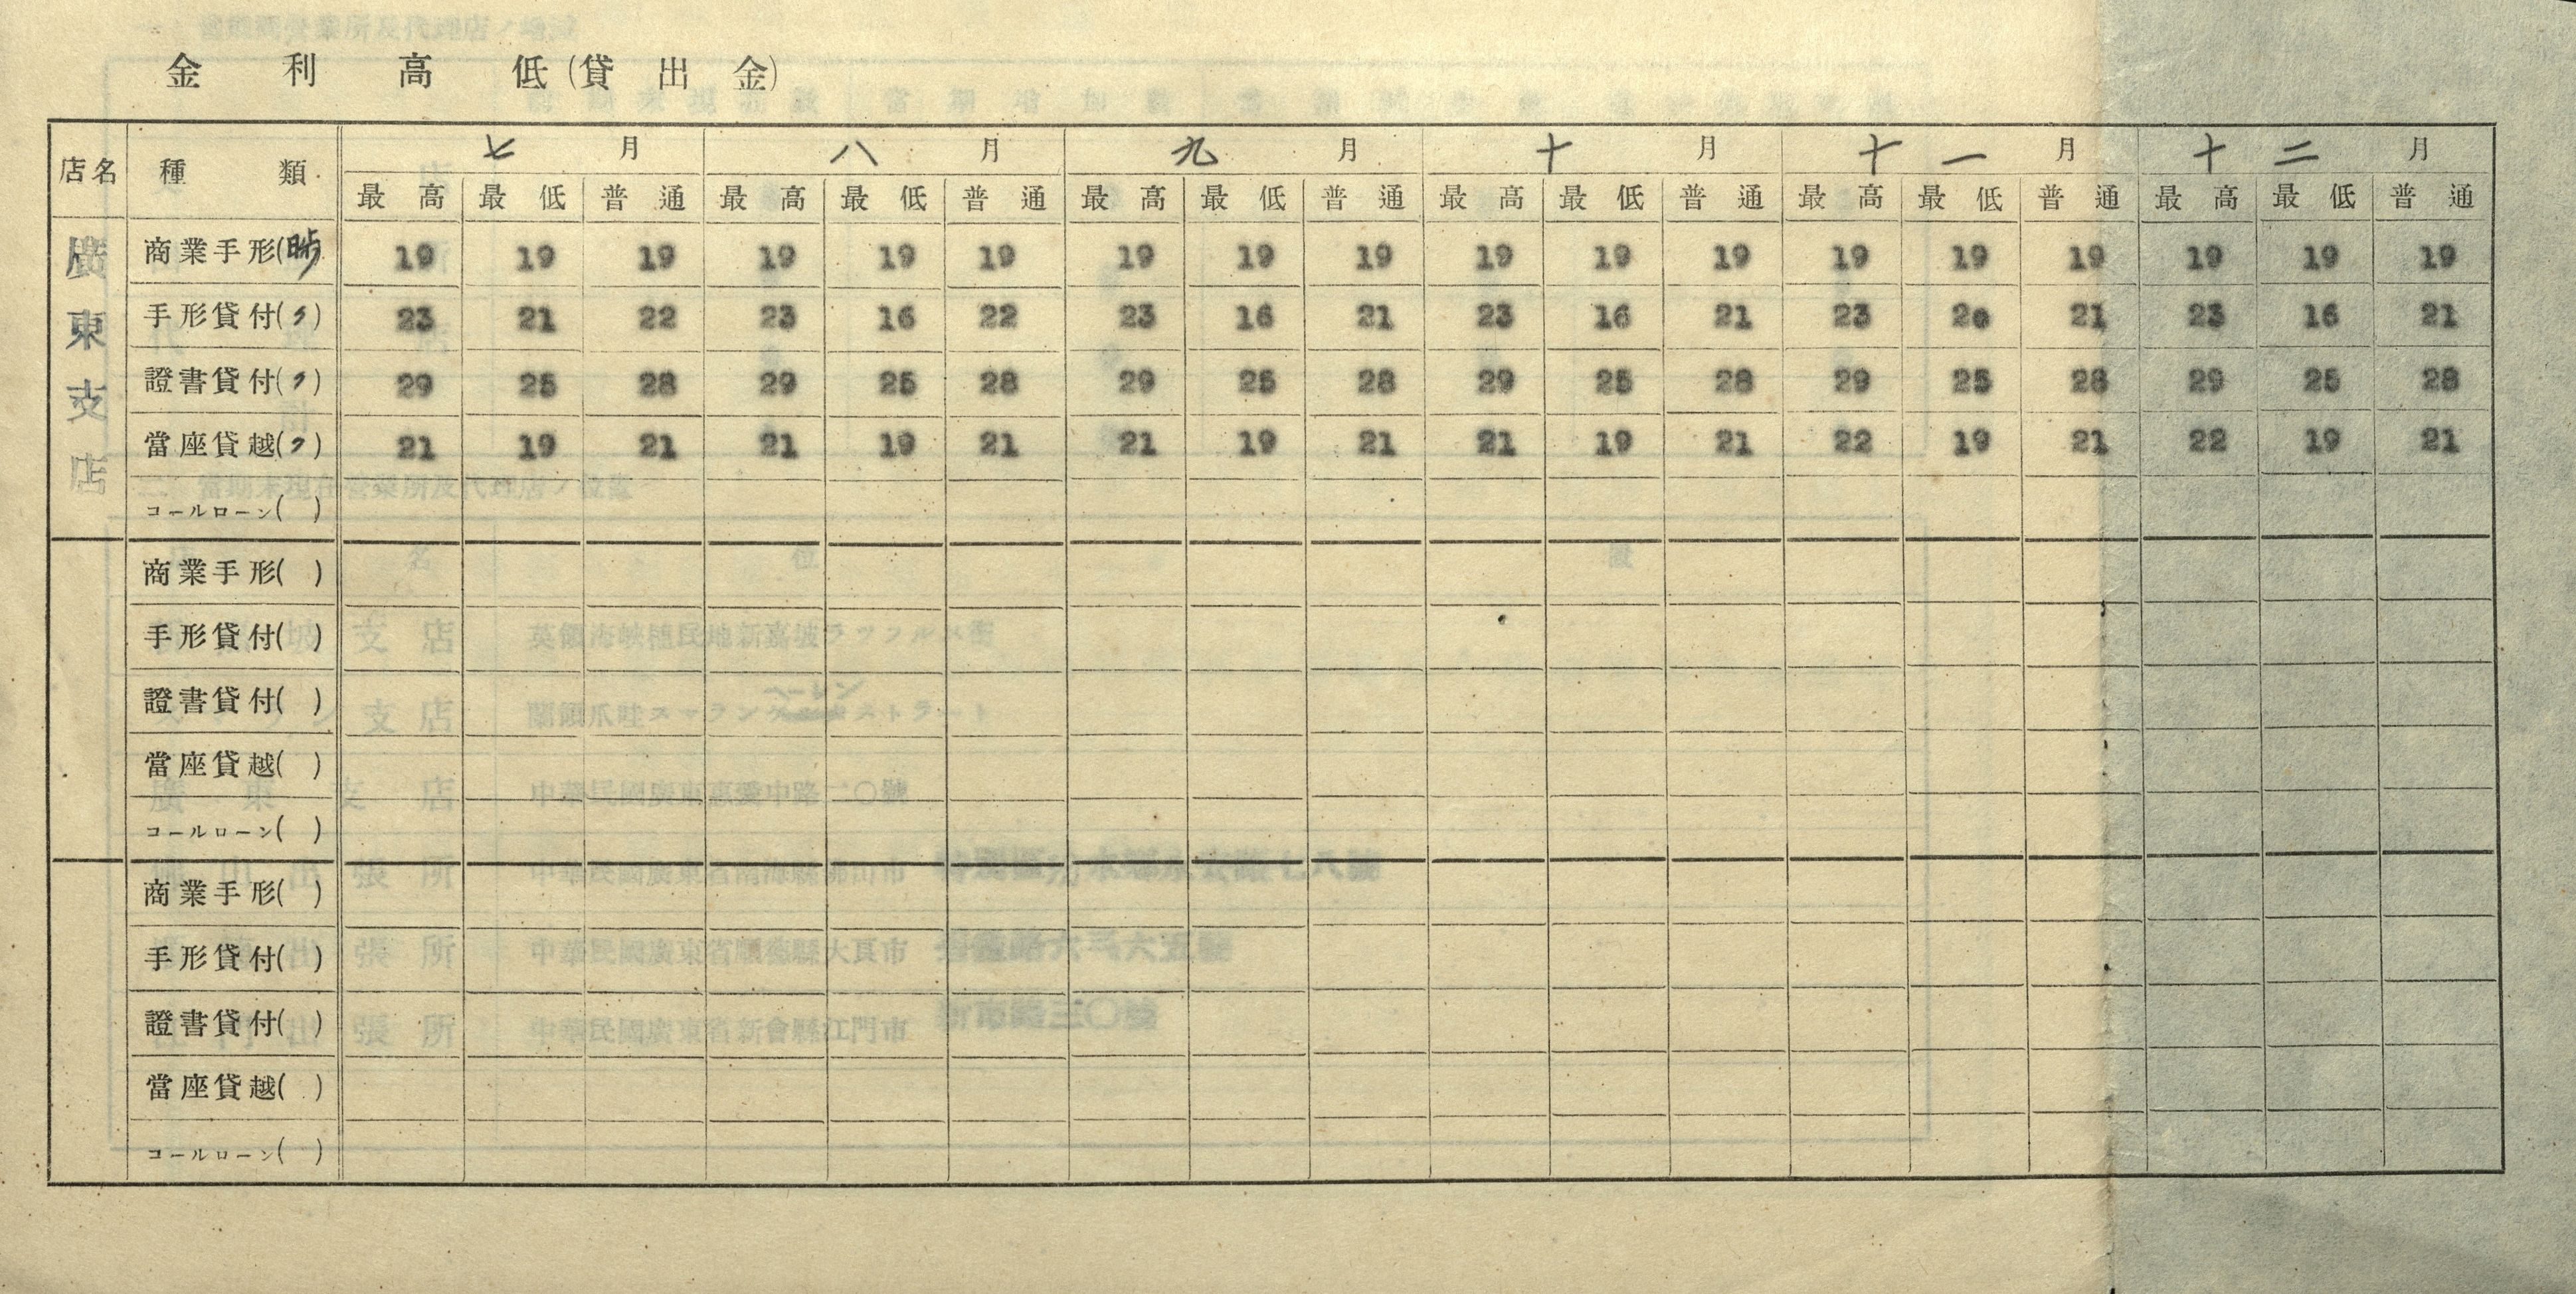 金利高低(貸出金)
店名 種類 七月 八月 九月 十月 十一月 十二月
最高 最低 普通 最高 最低 普通 最高 最低 普通 最高 最低 普通 最高 最低 普通 最高 最低 普通
廣東支店
商業手形(日歩) 19 19 19 19 19 19 19 19 19 19 19 19 19 19 19 19 19 19
手形貸付(〃) 23 21 22 23 16 22 23 16 21 23 16 21 23 20 21 23 16 21
證書貸付(〃) 29 25 28 29 25 28 29 25 28 29 25 28 29 25 28 29 25 28
當座貸越(〃) 21 19 21 21 19 21 21 19 21 21 19 21 22 19 21 22 19 21
コールローン( )
商業手形( )
手形貸付( )
證書貸付( )
當座貸越( )
コールローン( )
商業手形( )
手形貸付( )
證書貸付( )
當座貸越( )
コールローン( )